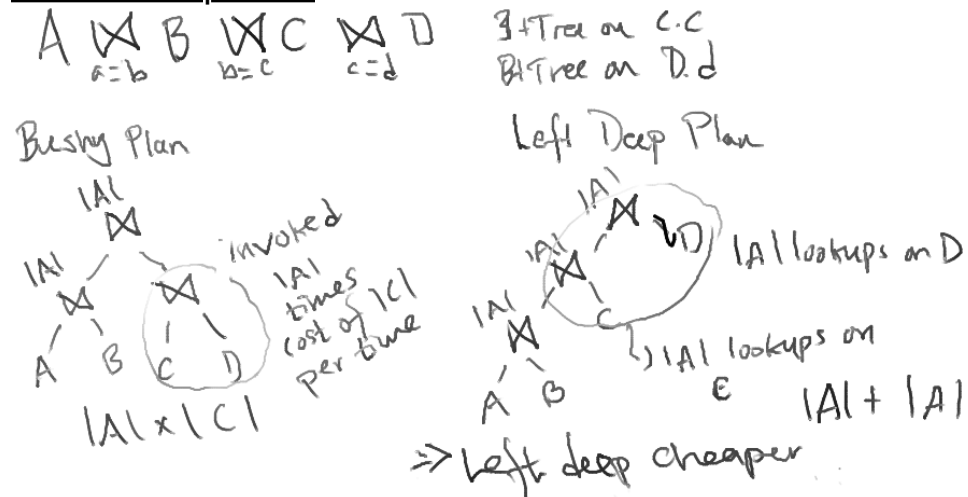 A ⋈ B ⋈ C ⋈ D
a=b b=c c=d
B+Tree on C.C
B+Tree on D.d
Bushy Plan
|A|
⋈
|A|
⋈ ⋈
A B C D
invoked
|A|
times
cost of |C|
per time
|A| x |C|
Left Deep Plan
|A|
⋈
D
|A| lookups on D
|A|
⋈
C
|A| lookups on
C
|A|
⋈
A B
|A| + |A|
=> Left deep cheaper